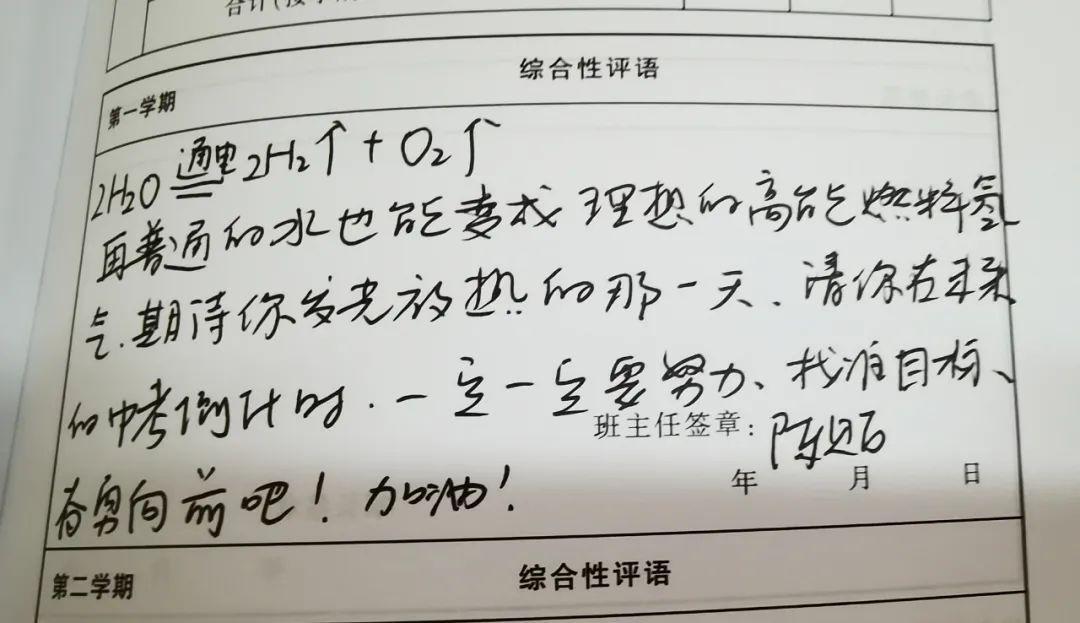 合计(按
综合性评语
第一学期
2H₂O 通电 2H₂↑ + O₂↑
再普通的水也能变成理想的高能燃料氢
气.期待你发光放热的那一天、请你在未来
的中考倒计时.一定一定要努力、找准目标、
班主任签章:陈
年 月 日
奋勇向前吧!加油!
第二学期
综合性评语